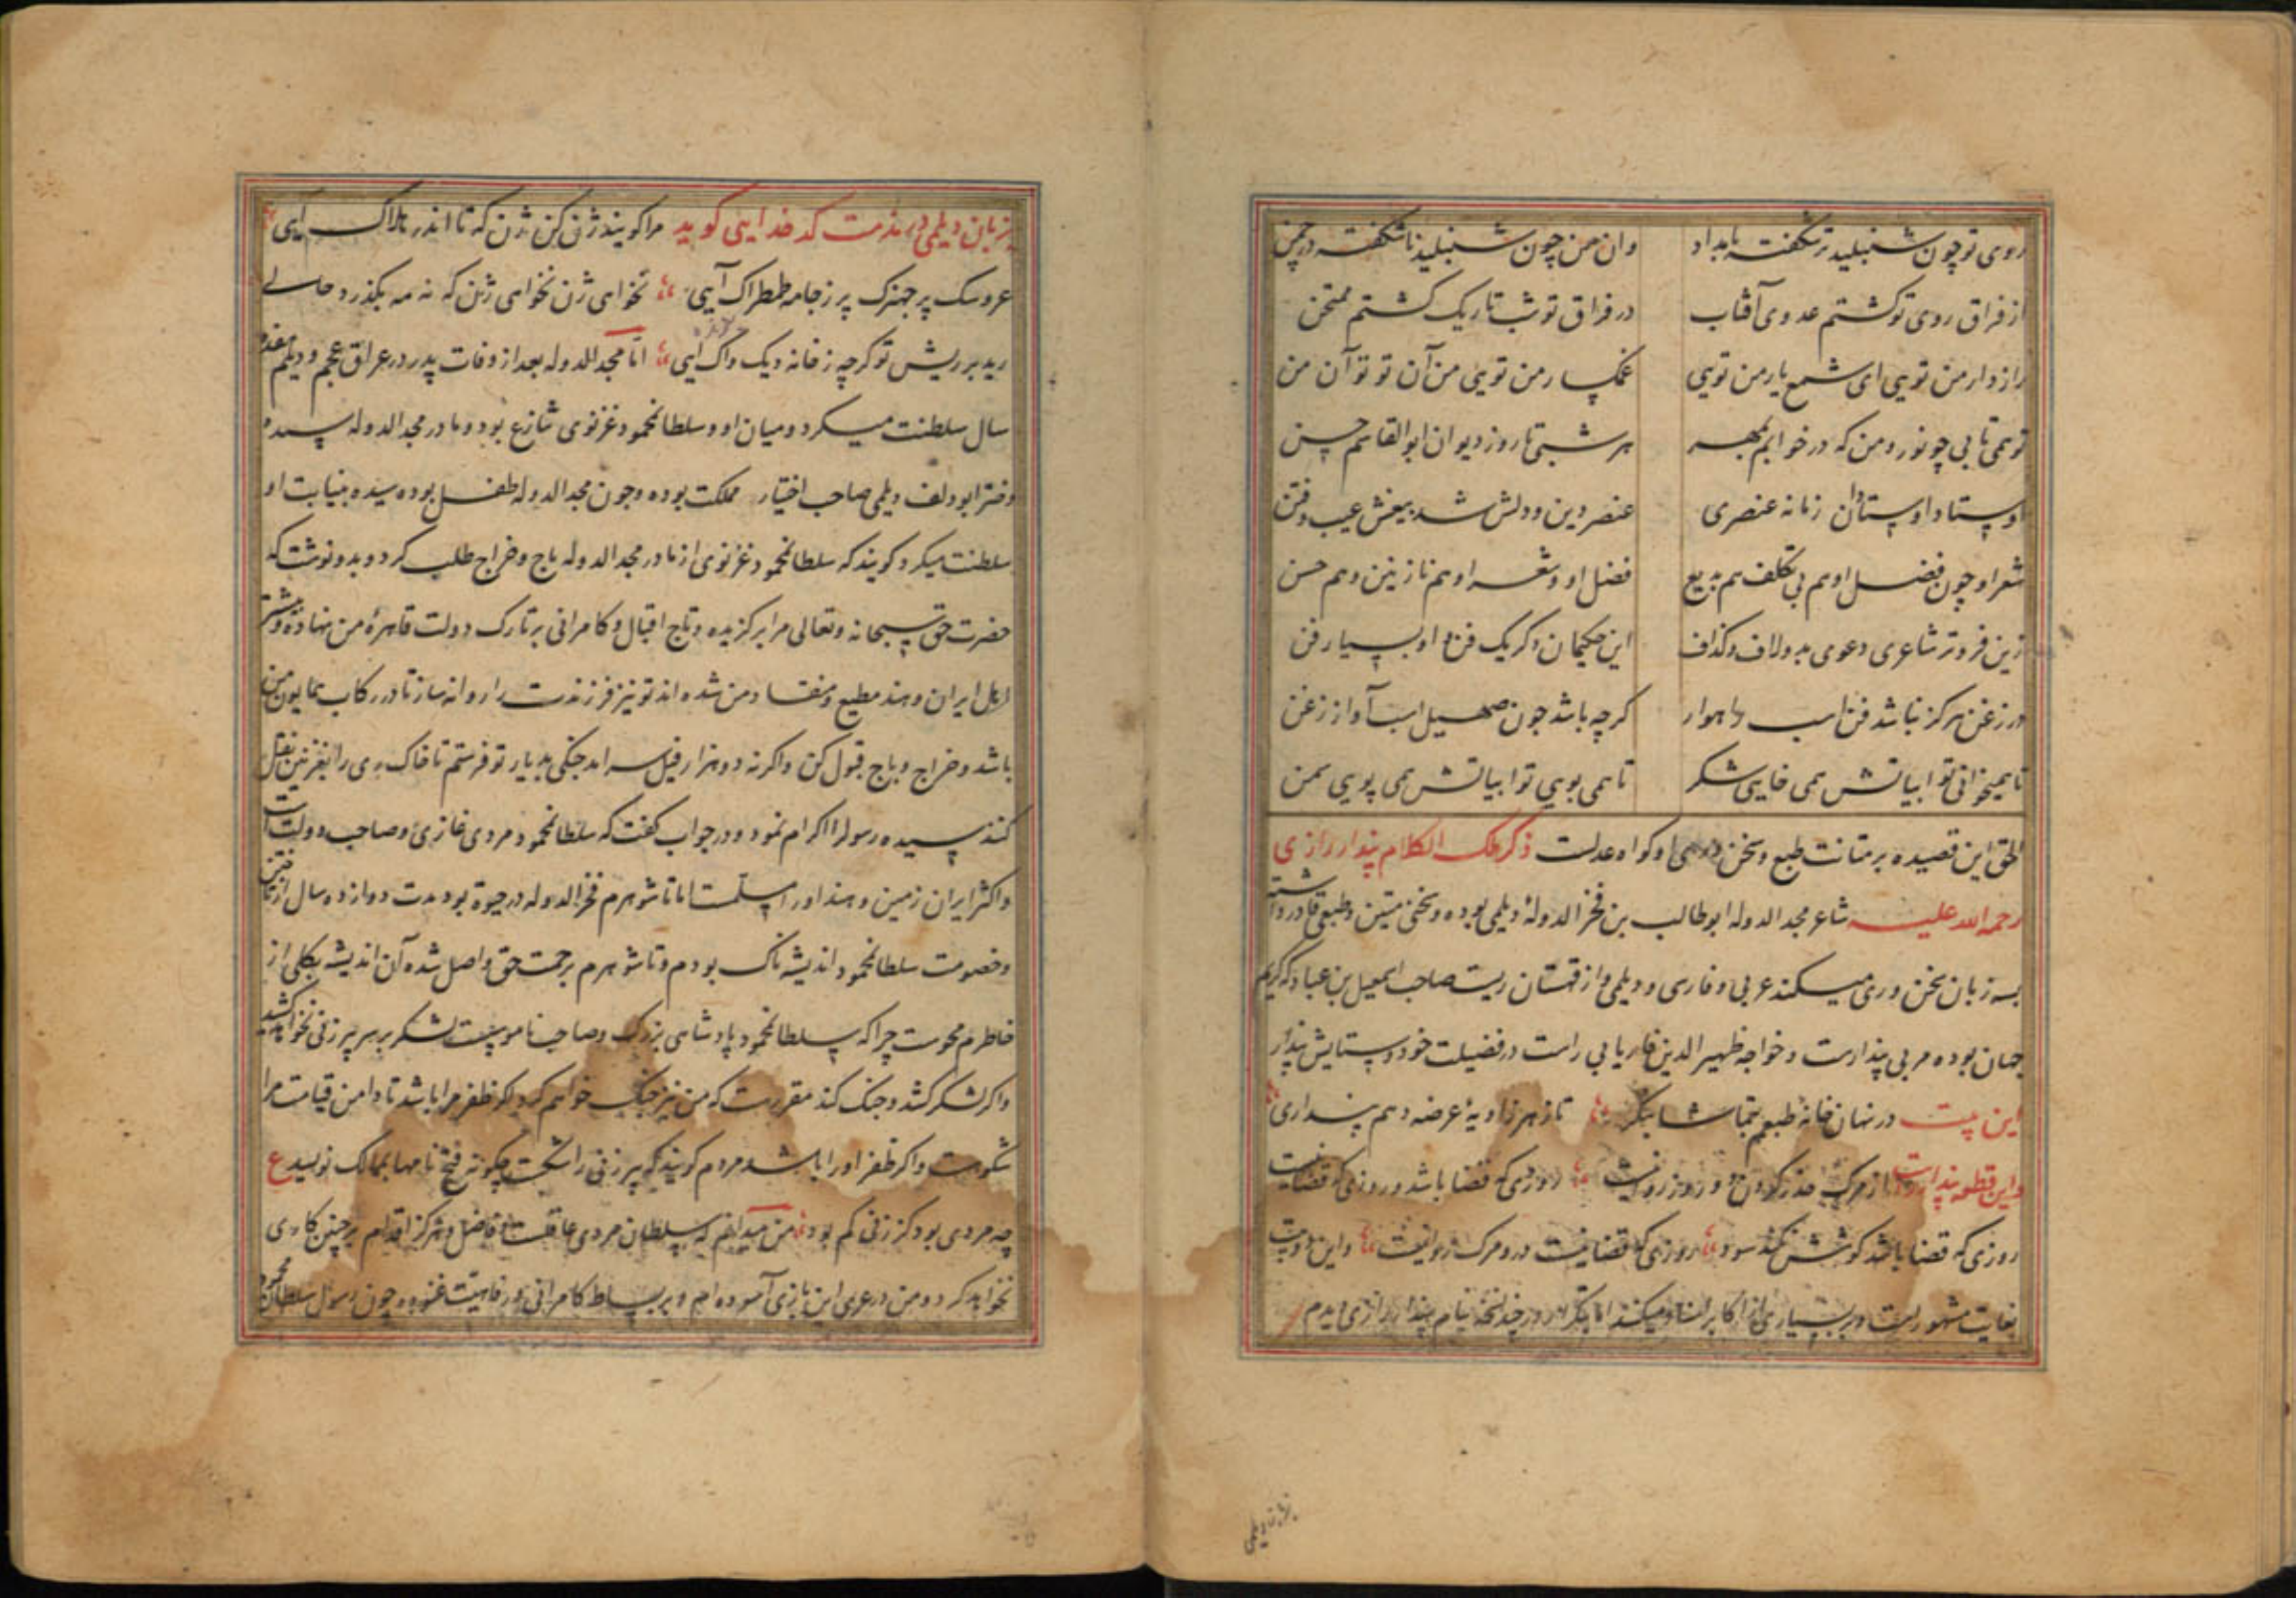 روی تو چون شنبلید تر شکفته بامداد وان من چون شنبلید ناشکفته در چمن
از فراق روی تو کشتم عدوی آفتاب در فراق تو شب تاریک کشتم ممتحن
رازدار من تویی ای شمع یار من تویی غمکسار من تویی من آن تو تو آن من
تو همی تابی چو نور و من که در خوابم بمهر هر شبی تا روز دیوان ابوالقاسم حسن
اوستاد اوستادان زمانه عنصری عنصر دین و دلش شد بیغش عیب و فتن
شعر او چون فضل او هم بی تکلف هم بدیع فضل او و شعر او هم نازنین و هم حسن
زین فروتر شاعری دعوی بدو لاف و کذاف این حکیمان دکر یک فن و او بسیار فن
در زغن هرکز نباشد فن اسب راهوار کرچه باشد چون صهیل اسب آواز زغن
تا همیخوانی تو ابیاتش همی خایی شکر تا همی بویی تو ابیاتش همی پویی سمن
الحق این قصیده بر متانت طبع و سخن او کواه عدلست ذکر ملک الکلام پندار رازی
رحمه الله علیه شاعر مجد الدوله ابوطالب بن فخر الدولهٔ دیلمی بوده و سخنی متین و طبعی قادر داشته
بسه زبان سخن وری میکند عربی و فارسی و دیلمی و از قهستان ریست صاحب اسمعیل بن عباد که کریم
جهان بوده مربی پندارست و خواجه ظهیر الدین فاریابی راست در فضیلت خود و ستایش پندار
این بیت در نهان خانهٔ طبعم بتماشا بنکر تا ز هر زاویهٔ عرضه دهم پنداری
و این قطعه پندار راست از مرک حذر کردن دو روز روا نیست روزی که قضا باشد و روزی که قضا نیست
روزی که قضا باشد کوشش نکند سود روزی که قضا نیست درو مرک روا نیست و این دو بیت
بغایت مشهورست و بسیاری از اکابر اسناد میکنند اما در چند نسخه بنام پندار رازی دیدم
بزبان دیلمی
بزبان دیلمی در مذمت کدخدایی کوید مرا کویند ژن کن ژن که تا اندر بلاک آیی
عروسک پر جهیزک پر ز جامه طمطراک آیی نخواهی ژن نخواهی ژن که نه مه بکذرد حالی
رید بر ریش تو کرچه ز خانه دیک واک آیی اما مجد الدوله بعد از وفات پدر در عراق عجم و دیلم هفده
سال سلطنت میکرد و میان او و سلطان محمود غزنوی تنازع بود و مادر مجد الدوله سیده
دختر ابو دلف دیلمی صاحب اختیار مملکت بوده و چون مجد الدوله طفل بوده سیده بنیابت او
سلطنت میکرد کویند که سلطان محمود غزنوی از مادر مجد الدوله باج و خراج طلب کرد و بدو نوشت که
حضرت حق سبحانه و تعالی مرا برکزیده و تاج اقبال و کامرانی بر تارک دولت قاهرهٔ من نهاده و بیشتر
اهل ایران و هند مطیع و منقاد من شده اند تو نیز فرزندت را روانه ساز تا در رکاب همایون من
باشد و خراج و باج قبول کن و اکر نه دو هزار فیل سرامد جنکی بدیار تو فرستم تا خاک ری را بغزنین نقل
کنند سیده رسول را اکرام نمود و در جواب کفت که سلطان محمود مردی غازی و صاحب دولت است
و اکثر ایران زمین و هند او را مسلمست اما تا شوهرم فخر الدوله در حیوة بود مدت دوازده سال از تاختن
و خصومت سلطان محمود اندیشه ناک بودم و تا شوهرم برحمت حق واصل شده آن اندیشه بکلی از
خاطرم محوست چرا که سلطان محمود پادشاهی بزرک و صاحب ناموس ست لشکر بر سر پیر زنی نخواهد کشید
و اکر لشکر کشد و جنک کند مقررست که من نیز جنک خواهم کرد اکر ظفر مرا باشد تا دامن قیامت مرا
شکوهست و اکر ظفر او را باشد مردم کویند که پیر زنی را شکست چکونه فتح نامها بممالک نویسد ع
چه مردی بود کز زنی کم بود من میدانم که سلطان مردی عاقلست و فاضل و هرکز اقدام بر چنین کاری
نخواهد کرد و من در عری این بازی آسوده ام و بر بساط کامرانی و رفاهیت غنوده چون رسول سلطان محمود